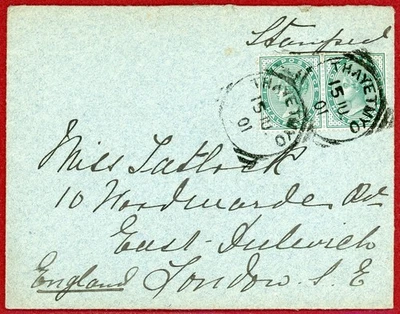 Stamped
THAYETMYO
15 IU
01
THAYETMYO
15 IU
01
Miss Tatlock
10 Woodwarde Rd
East Dulwich
England London. S. E